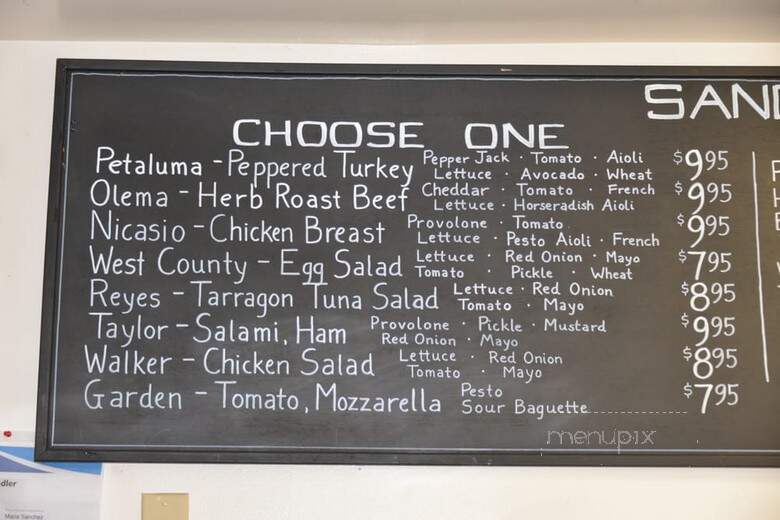 SAND
CHOOSE ONE
Petaluma - Peppered Turkey Pepper Jack · Tomato · Aioli $9.95
Lettuce · Avocado · Wheat
Olema - Herb Roast Beef Cheddar · Tomato · French $9.95
Lettuce · Horseradish Aioli
Nicasio - Chicken Breast Provolone · Tomato $9.95
Lettuce · Pesto Aioli · French
West County - Egg Salad Lettuce · Red Onion · Mayo $7.95
Tomato · Pickle · Wheat
Reyes - Tarragon Tuna Salad Lettuce · Red Onion $8.95
Tomato · Mayo
Taylor - Salami, Ham Provolone · Pickle · Mustard $9.95
Red Onion · Mayo
Walker - Chicken Salad Lettuce · Red Onion $8.95
Tomato · Mayo
Garden - Tomato, Mozzarella Pesto $7.95
Sour Baguette
menupix
dler
Maria Sanchez